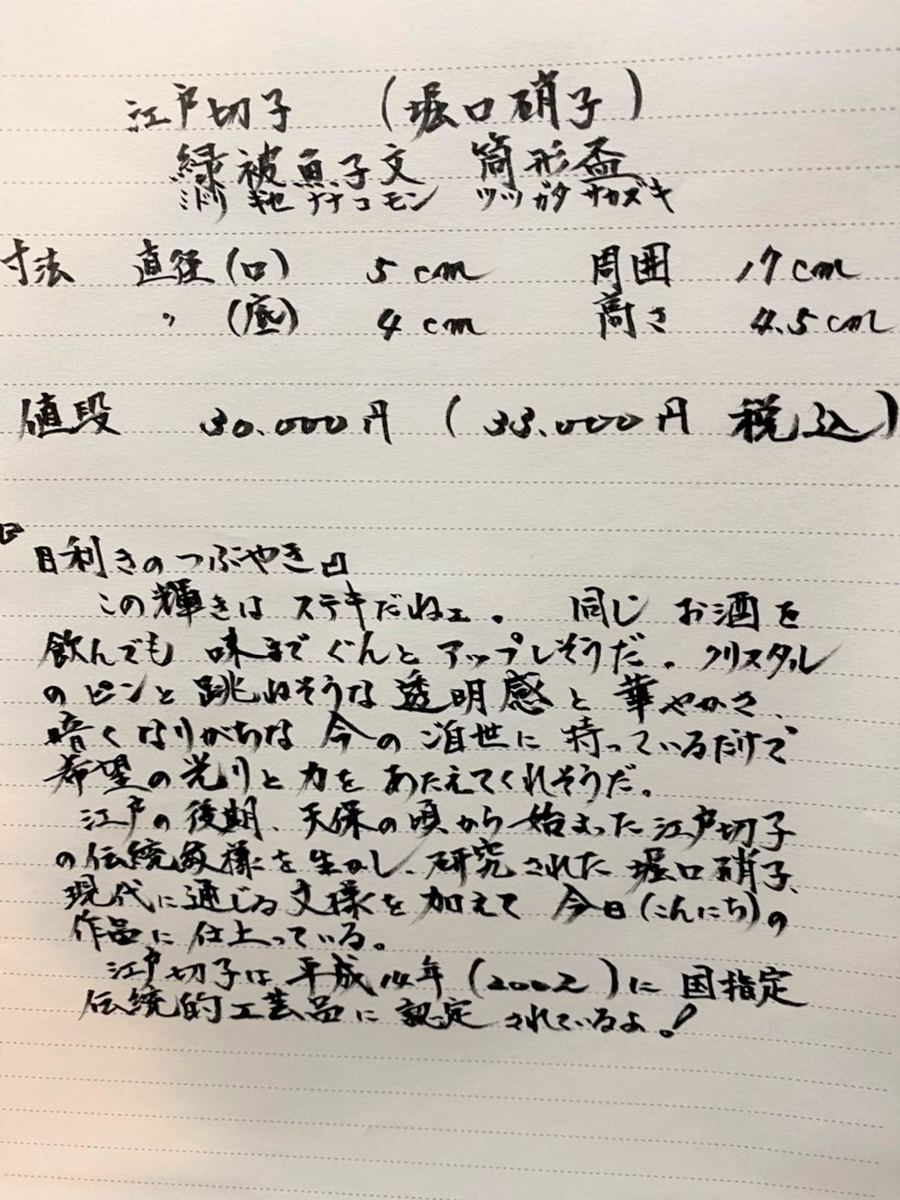 江戸切子 (堀口硝子)
緑被魚子文 筒形盃
ミドリ キセ ナナコ モン ツツ ガタ サカズキ
寸法 直径(口) 5cm 周囲 17cm
〃 (底) 4cm 高さ 4.5cm
値段 30.000円 (33.000円 税込)
『目利きのつぶやき』
この輝きはステキだねェ。 同じ お酒を
飲んでも 味まで ぐんと アップしそうだ。クリスタル
のピンと 跳ねそうな 透明感と 華やかさ、
暗くなりがちな 今のご自世に 持っているだけで
希望の光りと力を あたえてくれそうだ。
江戸の後期、天保の頃から始まった江戸切子
の伝統紋様を生かし、研究された 堀口硝子、
現代に通じる文様を加えて 今日(こんにち)の
作品に仕上っている。
江戸切子は 平成14年(2002)に 国指定
伝統的工芸品に認定されているよ!